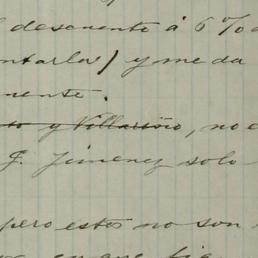 descuento á 6%
ntarlos) y me da
mente.
y Villarisoio, no
J. Jimenez solo
pero estos no son